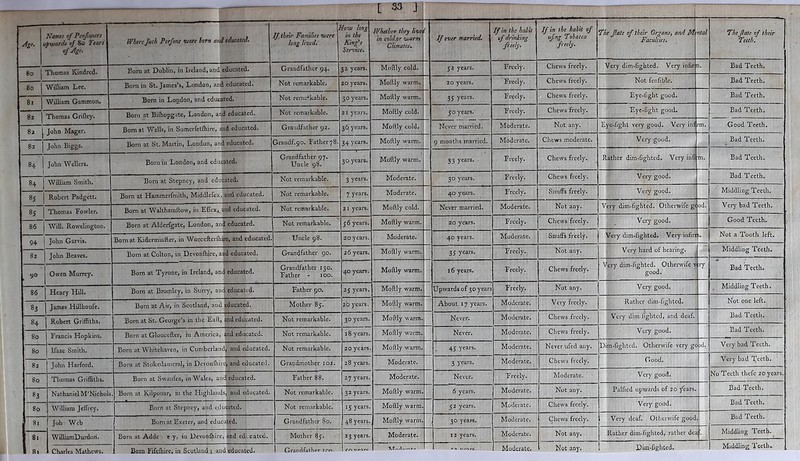 [ 33 ]
Age. | Names of Pensioners upwards of 80 Years of Age. | Where such Persons were born and educated. | If their Families were long lived. | How long in the King's Service. | Whether they lived in cold or warm Climates. | If ever married. | If in the habit of drinking freely. | If in the habit of using Tobacco freely. | The state of their Organs, and Mental Faculties. | The state of their Teeth.
80 | Thomas Kindred. | Born at Dublin, in Ireland, and educated. | Grandfather 94. | 32 years. | Mostly cold. | 52 years. | Freely. | Chews freely. | Very dim-sighted. Very infirm. | Bad Teeth.
80 | William Lee. | Born in St. James's, London, and educated. | Not remarkable. | 20 years. | Mostly warm. | 20 years. | Freely. | Chews freely. | Not sensible. | Bad Teeth.
81 | William Gammon. | Born in London, and educated. | Not remarkable. | 30 years. | Mostly warm. | 35 years. | Freely. | Chews freely. | Eye-sight good. | Bad Teeth.
82 | Thomas Grisley. | Born at Bishopgate, London, and educated. | Not remarkable. | 21 years. | Mostly cold. | 50 years. | Freely. | Chews freely. | Eye-sight good. | Bad Teeth.
82 | John Mager. | Born at Wells, in Somersetshire, and educated. | Grandfather 92. | 36 years. | Mostly cold. | Never married. | Moderate. | Not any. | Eye-sight very good. Very infirm. | Good Teeth.
82 | John Biggs. | Born at St. Martin, London, and educated. | Grandf. 90. Father 78. | 34 years. | Mostly warm. | 9 months married. | Moderate. | Chews moderate. | Very good. | Bad Teeth.
84 | John Wellers. | Born in London, and educated. | Grandfather 97. Uncle 98. | 30 years. | Mostly warm. | 33 years. | Freely. | Chews freely. | Rather dim-sighted. Very infirm. | Bad Teeth.
84 | William Smith. | Born at Stepney, and educated. | Not remarkable. | 3 years. | Moderate. | 30 years. | Freely. | Chews freely. | Very good. | Bad Teeth.
85 | Robert Padgett. | Born at Hammersmith, Middlesex, and educated. | Not remarkable. | 7 years. | Moderate. | 40 years. | Freely. | Snuffs freely. | Very good. | Middling Teeth.
85 | Thomas Fowler. | Born at Walthamstow, in Essex, and educated. | Not remarkable. | 21 years. | Mostly cold. | Never married. | Moderate. | Not any. | Very dim-sighted. Otherwise good. | Very bad Teeth.
86 | Will. Rowslington. | Born at Aldersgate, London, and educated. | Not remarkable. | 56 years. | Mostly warm. | 20 years. | Freely. | Chews freely. | Very good. | Good Teeth.
94 | John Garvis. | Born at Kidermuster, in Worcestershire, and educated. | Uncle 98. | 20 years. | Moderate. | 40 years. | Moderate. | Snuffs freely. | Very dim-sighted. Very infirm. | Not a Tooth left.
82 | John Beaves. | Born at Colton, in Devonshire, and educated. | Grandfather 90. | 26 years. | Mostly warm. | 35 years. | Freely. | Not any. | Very hard of hearing. | Middling Teeth.
90 | Owen Murrey. | Born at Tyrone, in Ireland, and educated. | Grandfather 130. Father - 100. | 40 years. | Mostly warm. | 16 years. | Freely. | Chews freely. | Very dim-sighted. Otherwise very good. | Bad Teeth.
86 | Heary Hill. | Born at Bromley, in Surry, and educated. | Father 90. | 25 years. | Mostly warm. | Upwards of 50 years | Freely. | Not any. | Very good. | Middling Teeth.
83 | James Hillhouse. | Born at Air, in Scotland, and educated. | Mother 85. | 20 years. | Mostly warm. | About 17 years. | Moderate. | Very freely. | Rather dim-sighted. | Not one left.
84 | Robert Griffiths. | Born at St. George's in the East, and educated. | Not remarkable. | 30 years. | Mostly warm. | Never. | Moderate. | Chews freely. | Very dim sighted, and deaf. | Bad Teeth.
80 | Francis Hopkins. | Born at Gloucester, in America, and educated. | Not remarkable. | 18 years. | Mostly warm. | Never. | Moderate. | Chews freely. | Very good. | Bad Teeth.
80 | Isaac Smith. | Born at Whitehaven, in Cumberland, and educated. | Not remarkable. | 20 years. | Mostly warm. | 45 years. | Moderate. | Never used any. | Dim-sighted. Otherwise very good. | Very bad Teeth.
82 | John Harford. | Born at Stokedameral, in Devonshire, and educated. | Grandmother 102. | 28 years. | Moderate. | 3 years. | Moderate. | Chews freely. | Good. | Very bad Teeth.
80 | Thomas Griffiths. | Born at Swansea, in Wales, and educated. | Father 88. | 27 years. | Moderate. | Never. | Freely. | Moderate. | Very good. | No Teeth these 20 years.
83 | Nathaniel M'Nichols. | Born at Kilponar, in the Highlands, and educated. | Not remarkable. | 32 years. | Mostly warm. | 6 years. | Moderate. | Not any. | Palsied upwards of 20 years. | Bad Teeth.
80 | William Jeffrey. | Born at Stepney, and educated. | Not remarkable. | 15 years. | Mostly warm. | 52 years. | Moderate. | Chews freely. | Very good. | Bad Teeth.
81 | Joh Web | Born at Exeter, and educated. | Grandfather 80. | 48 years. | Mostly warm. | 30 years. | Moderate. | Chews freely. | Very deaf. Otherwise good. | Bad Teeth.
81 | William Durdon. | Born at Adde ey, in Devonshire, and educated. | Mother 85. | 23 years. | Moderate. | 12 years. | Moderate. | Not any. | Rather dim-sighted, rather deaf. | Middling Teeth.
81 | Charles Mathews. | Born Fifeshire, in Scotland; and educated. | Grandfather | Moderate. | Not any. | Dim-sighted. | Middling Teeth.